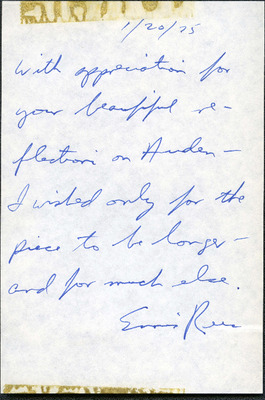 1/20/75
With appreciation for
your beautiful re-
flections on Auden —
I wished only for the
piece to be longer —
and for much else.
Ennis Rees